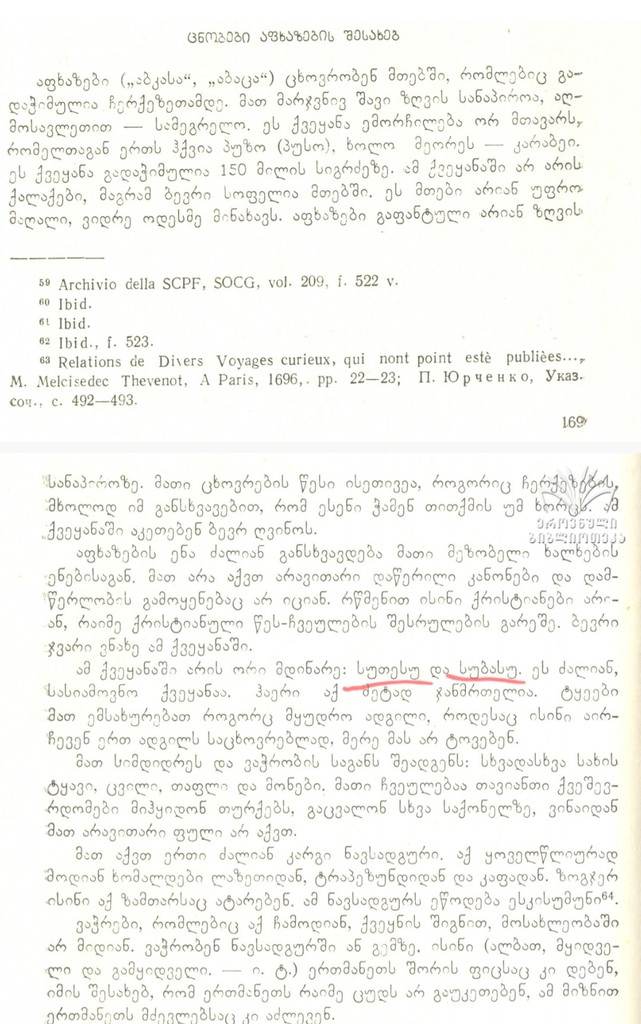 ᲪᲜᲝᲑᲔᲑᲘ ᲐᲤᲮᲐᲖᲔᲑᲘᲡ ᲨᲔᲡᲐᲮᲔᲑ
აფხაზები („აბკასა“, „აბაცა“) ცხოვრობენ მთებში, რომლებიც გა-
დაჭიმულია ჩერქეზეთამდე. მათ მარჯვნივ შავი ზღვის სანაპიროა, აღ-
მოსავლეთით — სამეგრელო. ეს ქვეყანა ემორჩილება ორ მთავარს,
რომელთაგან ერთს ჰქვია პუზო (პუსო), ხოლო მეორეს — კარაბეი.
ეს ქვეყანა გადაჭიმულია 150 მილის სიგრძეზე. ამ ქვეყანაში არ არის
ქალაქები, მაგრამ ბევრი სოფელია მთებში. ეს მთები არიან უფრო
მაღალი, ვიდრე ოდესმე მინახავს. აფხაზები გაფანტული არიან ზღვის
59 Archivio della SCPF, SOCG, vol. 209, f. 522 v.
60 Ibid.
61 Ibid.
62 Ibid., f. 523.
63 Relations de Divers Voyages curieux, qui nont point estè publièes...,
M. Melcisedec Thevenot, A Paris, 1696,. pp. 22—23; П. Юрченко, Указ.
соч., с. 492—493.
169
სანაპიროზე. მათი ცხოვრების წესი ისეთივეა, როგორიც ჩერქეზების,
მხოლოდ იმ განსხვავებით, რომ ესენი ჭამენ თითქმის უმ ხორცს. ამ
ქვეყანაში აკეთებენ ბევრ ღვინოს.
ეროვნული
ბიბლიოთეკა
აფხაზების ენა ძალიან განსხვავდება მათი მეზობელი ხალხების
ენებისაგან. მათ არა აქვთ არავითარი დაწერილი კანონები და დამ-
წერლობის გამოყენებაც არ იციან. რწმენით ისინი ქრისტიანები არი-
ან, რაიმე ქრისტიანული წეს-ჩვეულების შესრულების გარეშე. ბევრი
ჯვარი ვნახე ამ ქვეყანაში.
ამ ქვეყანაში არის ორი მდინარე: სუთესუ და სუბასუ. ეს ძალიან,
სასიამოვნო ქვეყანაა. ჰაერი აქ მეტად ჯანმრთელია. ტყეები
მათ ემსახურებათ როგორც მყუდრო ადგილი, როდესაც ისინი აირ-
ჩევენ ერთ ადგილს საცხოვრებლად, მერე მას არ ტოვებენ.
მათ სიმდიდრეს და ვაჭრობის საგანს შეადგენს: სხვადასხვა სახის
ტყავი, ცვილი, თაფლი და მონები. მათი ჩვეულებაა თავიანთი ქვეშევ-
რდომები მიჰყიდონ თურქებს, გაცვალონ სხვა საქონელზე, ვინაიდან
მათ არავითარი ფული არ აქვთ.
მათ აქვთ ერთი ძალიან კარგი ნავსადგური. აქ ყოველწლიურად
მოდიან ხომალდები ლაზეთიდან, ტრაპეზუნდიდან და კაფადან. ზოგჯერ
ისინი აქ ზამთარსაც ატარებენ. ამ ნავსადგურს ეწოდება ესკისუმუნი64.
ვაჭრები, რომლებიც აქ ჩამოდიან, ქვეყნის შიგნით, მოსახლეობაში
არ მიდიან. ვაჭრობენ ნავსადგურში ან გემზე. ისინი (ალბათ, მყიდვე-
ლი და გამყიდველი. — ი. ტ.) ერთმანეთს შორის ფიცსაც კი დებენ,
იმის შესახებ, რომ ერთმანეთს რაიმე ცუდს არ გაუკეთებენ, ამ მიზნით
ერთმანეთს მძევლებსაც კი აძლევენ.